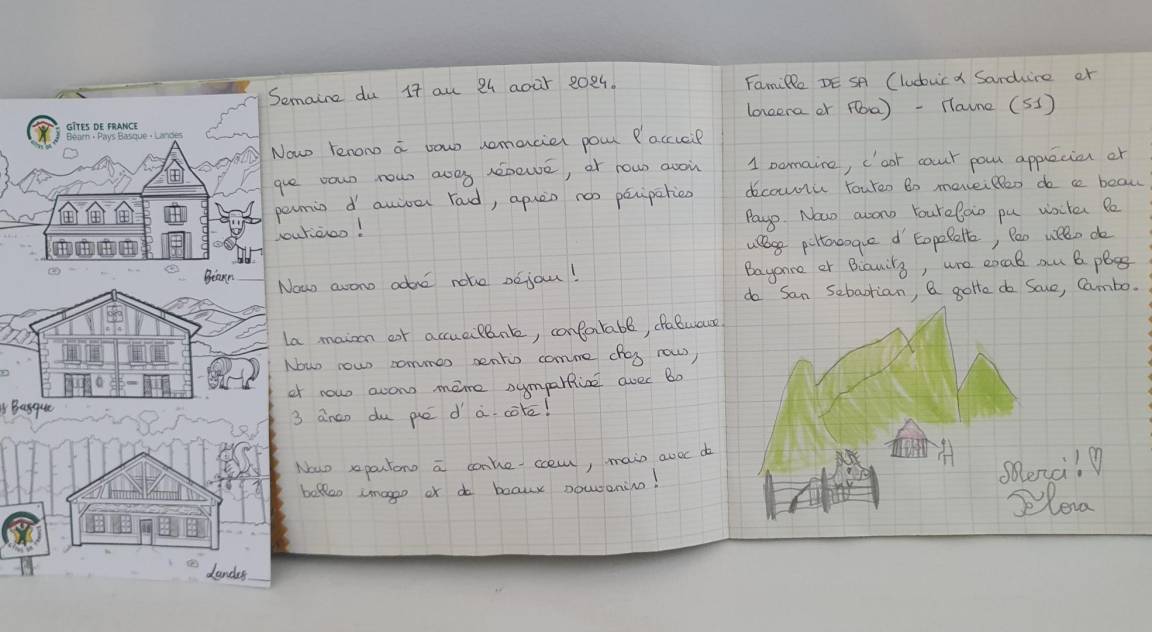 GÎTES DE FRANCE
Béarn • Pays Basque • Landes
Béarn
Basque
Landes
Semaine du 17 au 24 août 2024.
Nous tenons à vous remercier pour l'accueil
que vous nous avez réservé, et nous avoir
permis d'arriver tard, après nos péripéties
routières !
Nous avons adoré notre séjour !
La maison est accueillante, confortable, chaleureuse.
Nous nous sommes sentis comme chez nous,
et nous avons même sympathisé avec les
3 ânes du pré d'à-côté !
Nous repartons à contre-coeur, mais avec de
belles images et de beaux souvenirs !
Famille DE SA (Ludovic & Sandrine et
et Flora) - Marne (51)
1 semaine, c'est court pour apprécier et
découvrir toutes les merveilles de ce beau
Pays. Nous avons toutefois pu visiter le
village pittoresque d'Espelette, les villes de
Bayonne et Biarritz, une escale sur la plage
de San Sebastian, la grotte de Sare, Cambo.
Merci !! ♡
Flora